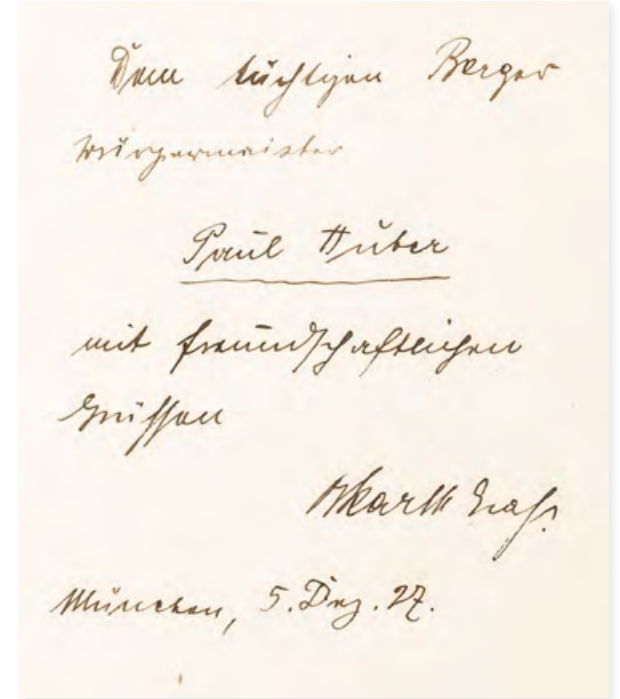 Dem tüchtigen Berger
Bürgermeister
Paul Huber
mit freundschaftlichen
Grüssen
Oskar M Graf.
München, 5. Dez. 27.